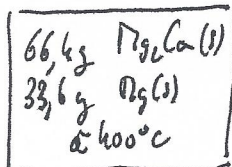 66,4g Mg₂Ca(s)
33,6g Mg(s)
à 400°C